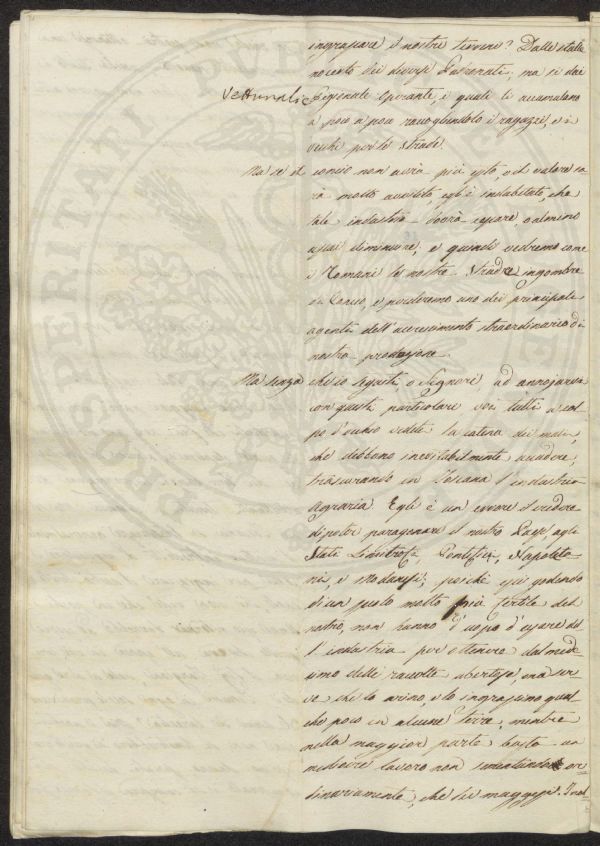 ingrassare il nostro terreno? Dalle stalle
no certo dei diversi Possidenti, ma sì dai
Vetturali e Pigionali Operanti, i quali li accumulano
a poco a poco raccogliendolo i ragazzi, e i
vecchi per le strade.
Ma se il concio non avrà più esito, o il valore sa
rà molto avvilito, egli è indubitato, che
tale industria dovrà cessare, o almeno
assai diminuire, e quindi vedremo come
i Romani le nostre Strade ingombre
di Concio, e perderemo uno dei principale
agenti dell'accrescimento straordinario di
nostra produzione.
Ma senza che io seguiti o Signori, ad annojarvi
con questi particolari voi tutti a col
po d'occhio vedete la catena dei mali,
che debbono inevitabilmente accadere,
trascurando in Toscana l'industria
agraria. Egli è un errore il credere
di poter paragonare il nostro Paese agli
Stati Limitrofi, Pontifici, Napoleta
ni, e Modanesi; poichè qui godendo
di un suolo molto più fertile del
nostro, non hanno d'uopo d'essere del
l'industria per ottenere dal mede
simo delle raccolte ubertose, ma ser
ve che lo arino, e lo ingrassino qual
che poco in alcune Terre, mentre
nella maggior parte basta un
mediocre lavoro non sementandole or
dinariamente, che di maggesi. Inol
PROSPERITATI PUBLICAE